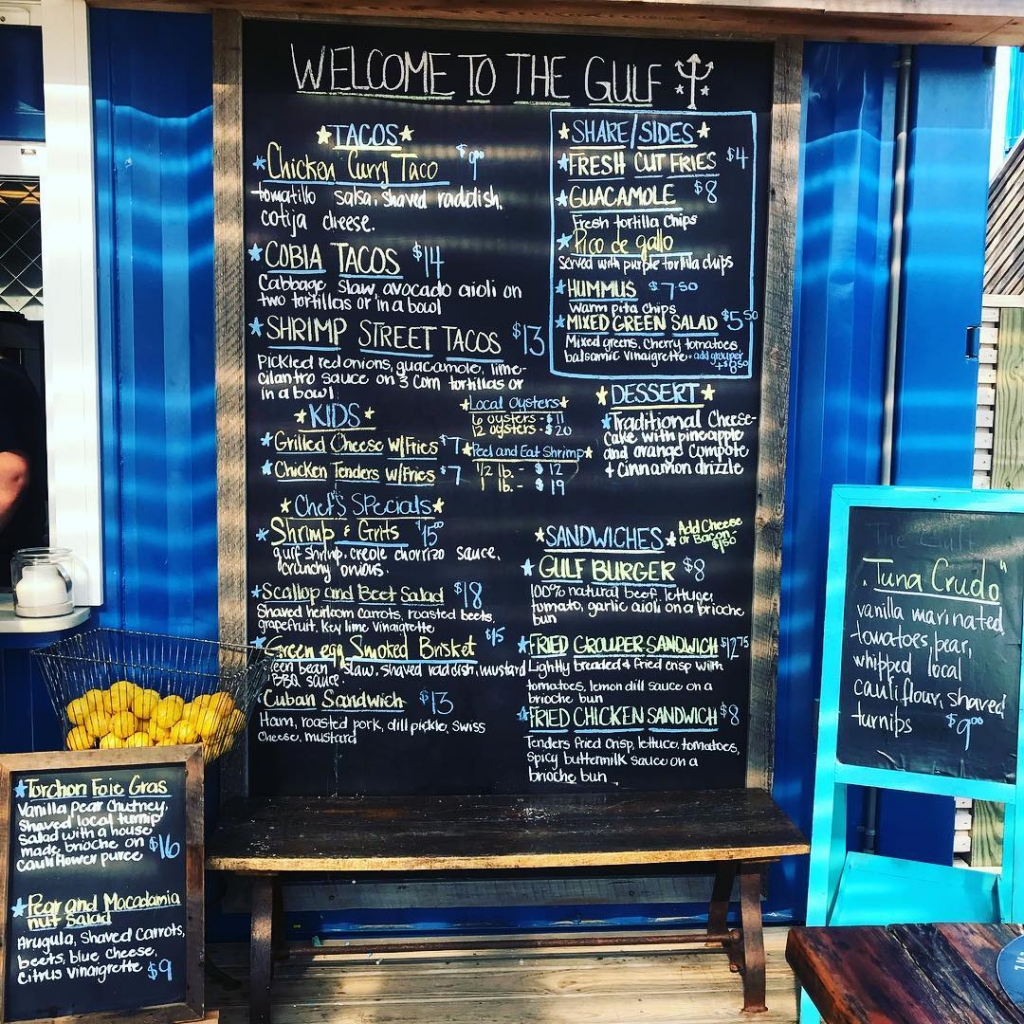 WELCOME TO THE GULF
TACOS
Chicken Curry Taco $9⁰⁰
tomatillo salsa, shaved raddish,
cotija cheese.
COBIA TACOS $14
Cabbage slaw, avocado aioli on
two tortillas or in a bowl
SHRIMP STREET TACOS $13
Pickled red onions, guacamole, lime-
cilantro sauce on 3 corn tortillas or
in a bowl
KIDS
Grilled Cheese w/Fries $7
Chicken Tenders w/Fries $7
Local Oysters
6 oysters - $11
12 oysters - $20
Peel and Eat Shrimp
1/2 lb. - $12
1 lb. - $19
Chef's Specials
Shrimp & Grits $15
gulf shrimp, creole chorrizo sauce,
crunchy onions.
Scallop and Beet Salad $18
Shaved heirloom carrots, roasted beets,
grapefruit, Key lime vinaigrette
Green egg Smoked Brisket $15
Green bean slaw, shaved raddish, mustard
BBQ sauce.
Cuban Sandwich $13
Ham, roasted pork, dill pickle, Swiss
Cheese, mustard
SHARE/SIDES
FRESH CUT FRIES $4
GUACAMOLE $8
Fresh tortilla chips
Pico de gallo
Served with purple tortilla chips
HUMMUS $7.50
warm pita chips
MIXED GREEN SALAD $5.50
Mixed greens, Cherry tomatoes,
balsamic vinaigrette - add grouper
+$8.50
DESSERT
Traditional Cheese-
cake with pineapple
and orange compote
+ cinnamon drizzle
SANDWICHES
Add Cheese
or Bacon
$1.50
GULF BURGER $8
100% natural beef, lettuce,
tomato, garlic aioli on a brioche
bun
FRIED GROUPER SANDWICH $12.75
Lightly breaded & fried crisp with
tomatoes, lemon dill sauce on a
brioche bun
FRIED CHICKEN SANDWICH $8
Tenders fried crisp, lettuce, tomatoes,
spicy buttermilk sauce on a
brioche bun
Torchon Foie Gras
Vanilla Pear Chutney,
Shaved local turnip
Salad with a house
made, brioche on $16
Cauliflower puree
Pear and Macadamia
nut Salad
Arugula, Shaved Carrots,
beets, blue cheese,
Citrus vinaigrette $9
"Tuna Crudo"
vanilla marinated
tomatoes, pear,
whipped local
cauliflour, shaved
turnips $9⁰⁰